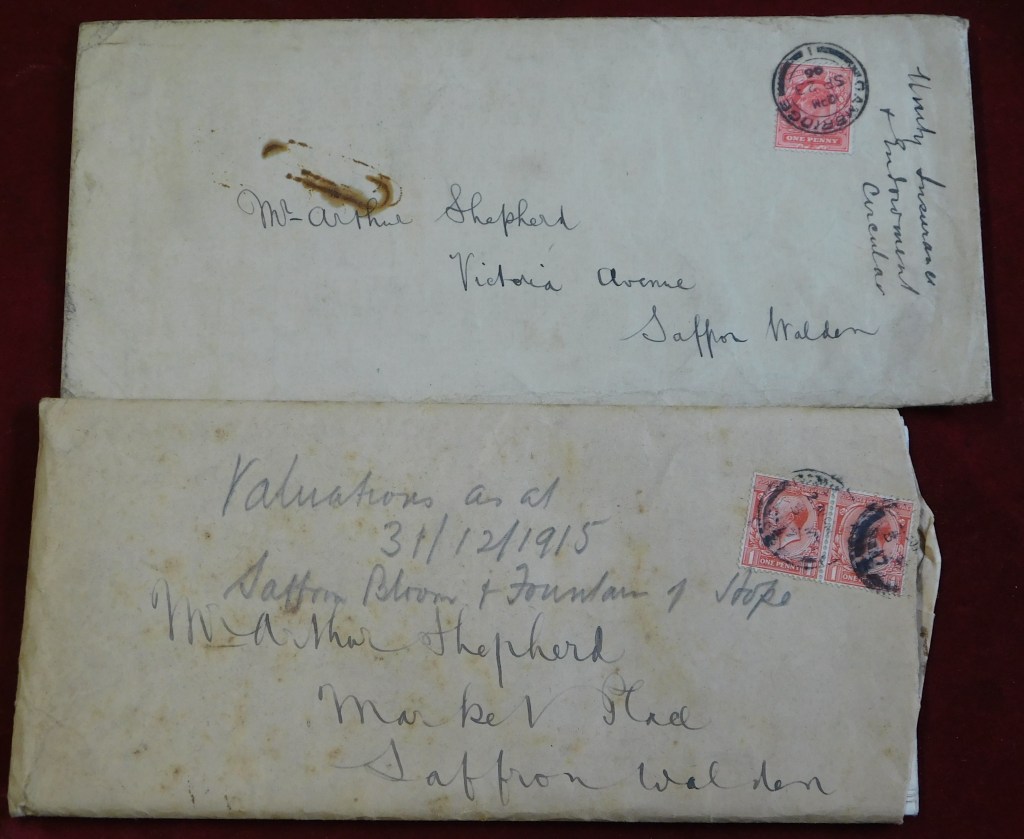 CAMBRIDGE
1
PM
SE
06
ONE PENNY
Unity Insurance
+ Endowment
Circular
Mr Arthur Shepherd
Victoria Avenue
Saffron Walden
Valuations as at
31/12/1915
Saffron Bloom & Fountain of Hope
1 ONE PENNY 1 ONE
Mr Arthur Shepherd
Market Place
Saffron Walden